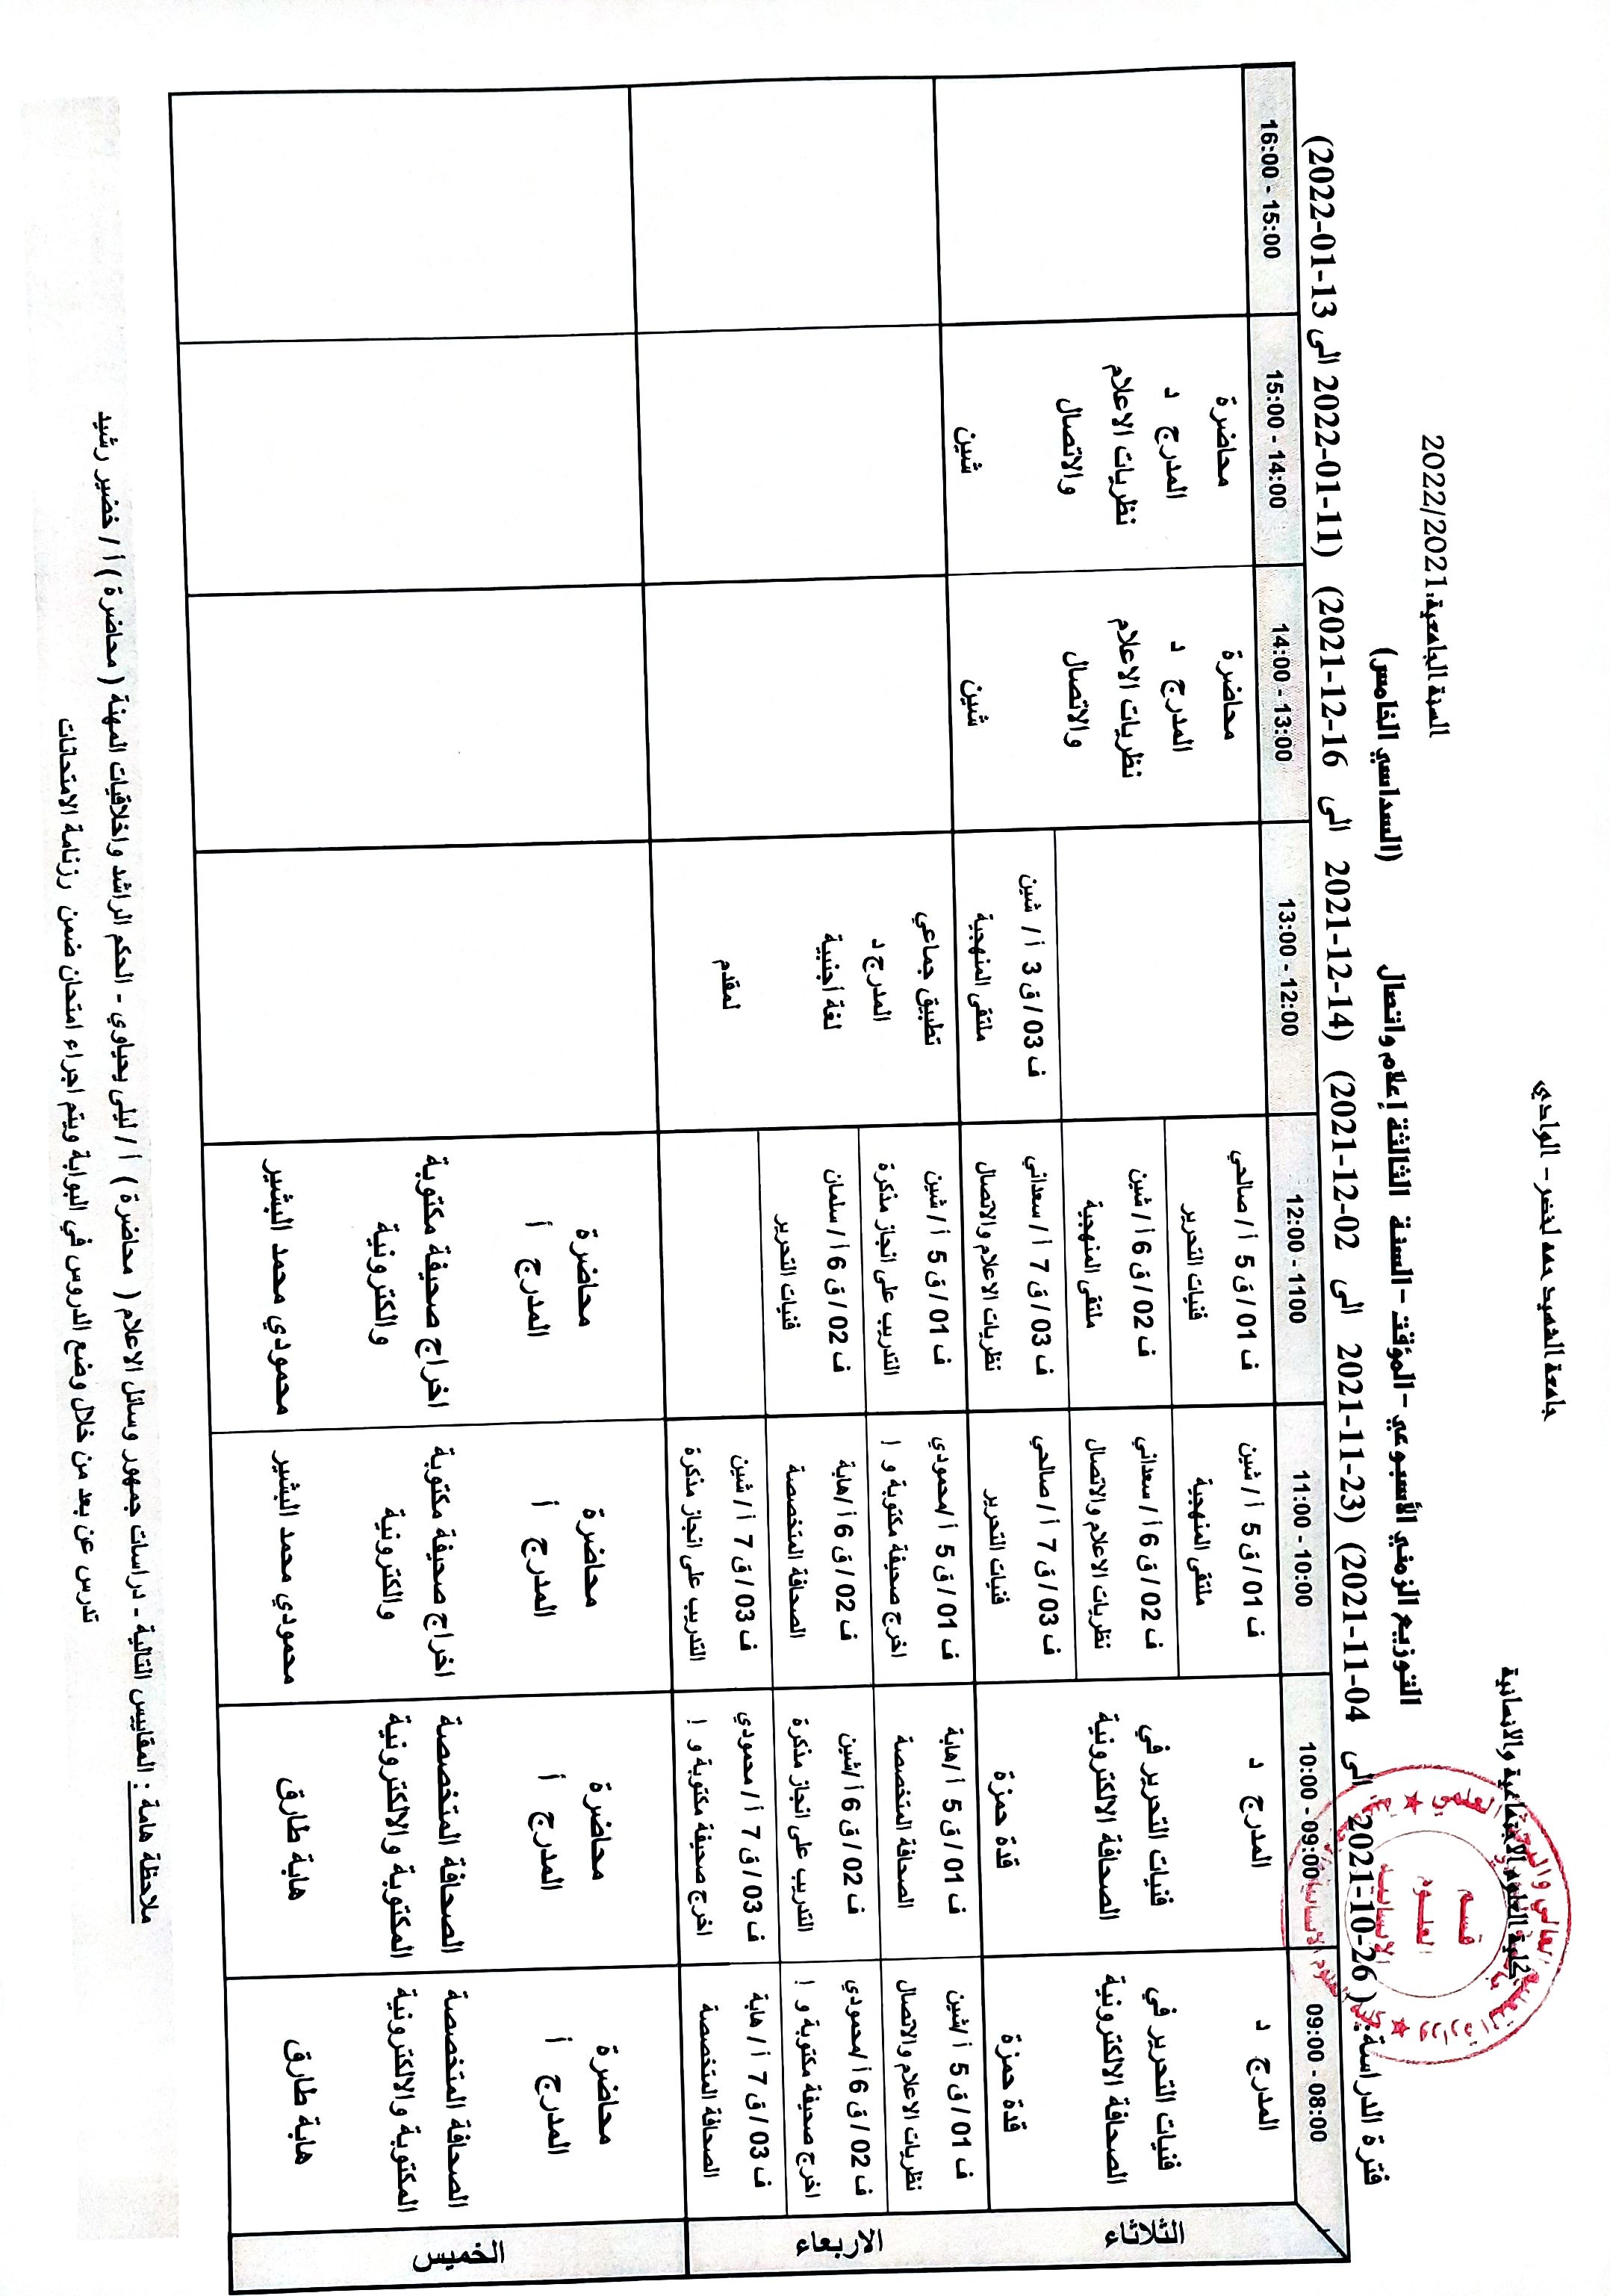 جامعة الشهيد حمه لخضر – الوادي
كلية العلوم الاجتماعية والانسانية
السنة الجامعية: 2022/2021
التوزيع الزمني الأسبوعي – المؤقت – السنة الثالثة إعلام واتصال (السداسي الخامس)
فترة الدراسة: (26-10-2021 الى 04-11-2021) (23-11-2021 الى 02-12-2021) (14-12-2021 الى 16-12-2021) (11-01-2022 الى 13-01-2022)
09:00 - 08:00
10:00 - 09:00
11:00 - 10:00
12:00 - 1100
13:00 - 12:00
14:00 - 13:00
15:00 - 14:00
16:00 - 15:00
الثلاثاء
المدرج د
فنيات التحرير في
الصحافة الالكترونية
قدة حمزة
المدرج د
فنيات التحرير في
الصحافة الالكترونية
قدة حمزة
ف 01 / ق 5 أ / شين
ملتقى المنهجية
ف 02 / ق 6 أ / سعداني
نظريات الاعلام والاتصال
ف 03 / ق 7 أ / صالحي
فنيات التحرير
ف 01 / ق 5 أ / صالحي
فنيات التحرير
ف 02 / ق 6 أ / شين
ملتقى المنهجية
ف 03 / ق 7 أ / سعداني
نظريات الاعلام والاتصال
ف 03 / ق 3 أ / شين
ملتقى المنهجية
محاضرة
المدرج د
نظريات الاعلام
والاتصال
شين
محاضرة
المدرج د
نظريات الاعلام
والاتصال
شين
الاربعاء
ف 01 / ق 5 أ /شين
نظريات الاعلام والاتصال
ف 02 / ق 6 أ /محمودي
اخرج صحيفة مكتوبة و إ
ف 03 / ق 7 أ / هابة
الصحافة المتخصصة
ف 01 / ق 5 أ /هابة
الصحافة المتخصصة
ف 02 / ق 6 أ /شين
التدريب على انجاز مذكرة
ف 03 / ق 7 أ / محمودي
اخرج صحيفة مكتوبة و إ
ف 01 / ق 5 أ /محمودي
اخرج صحيفة مكتوبة و إ
ف 02 / ق 6 أ /هابة
الصحافة المتخصصة
ف 03 / ق 7 أ / شين
التدريب على انجاز مذكرة
ف 01 / ق 5 أ / شين
التدريب على انجاز مذكرة
ف 02 / ق 6 أ / سلمان
فنيات التحرير
تطبيق جماعي
المدرج د
لغة أجنبية
لمقدم
الخميس
محاضرة
المدرج أ
الصحافة المتخصصة
المكتوبة والالكترونية
هابة طارق
محاضرة
المدرج أ
الصحافة المتخصصة
المكتوبة والالكترونية
هابة طارق
محاضرة
المدرج أ
اخراج صحيفة مكتوبة
والكترونية
محمودي محمد البشير
محاضرة
المدرج أ
اخراج صحيفة مكتوبة
والكترونية
محمودي محمد البشير
ملاحظة هامة : المقاييس التالية - دراسات جمهور وسائل الاعلام ( محاضرة ) أ / ليلى يحياوي - الحكم الراشد واخلاقيات المهنة ( محاضرة ) أ / خضير رشيد
تدرس عن بعد من خلال وضع الدروس في البوابة ويتم اجراء امتحان ضمن رزنامة الامتحانات
قسم
العلوم
الانسانية